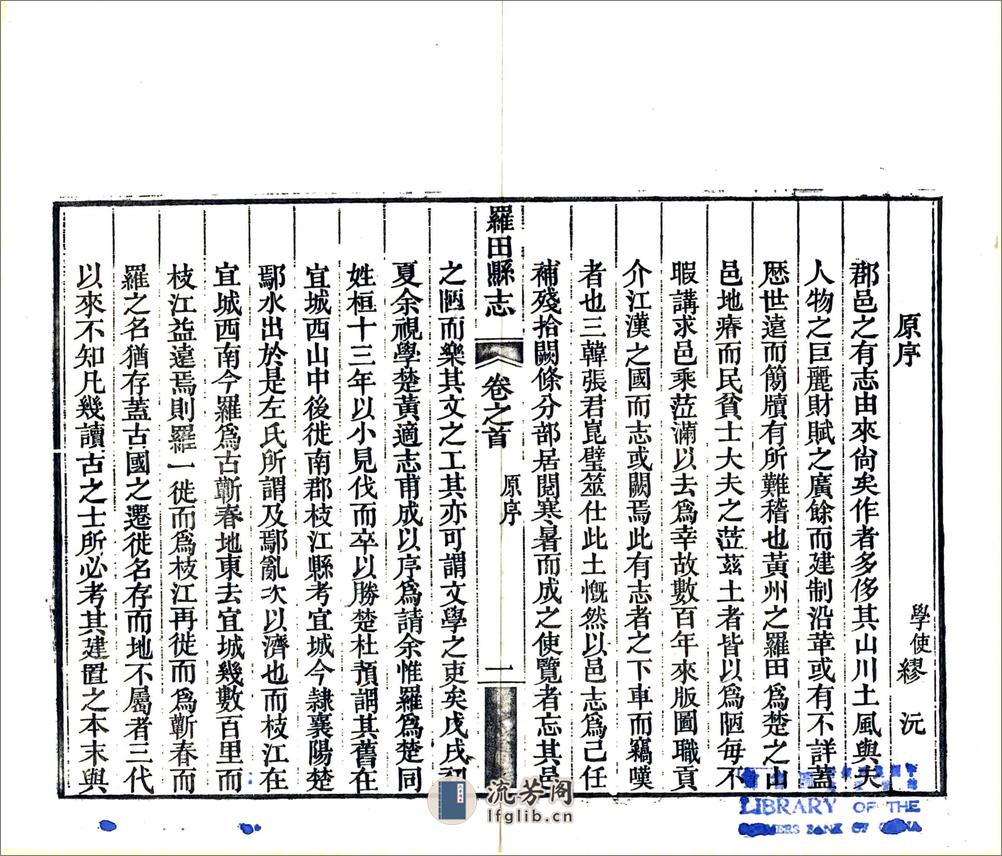 原序
學使繆　沅
郡邑之有志由來尙矣作者多侈其山川土風與夫
人物之巨麗財賦之廣餘而建制沿革或有不詳蓋
歷世遠而簡牘有所難稽也黃州之羅田爲楚之山
邑地瘠而民貧士大夫之蒞茲土者皆以爲陋每不
暇講求邑乘蒞滿以去爲幸故數百年來版圖職貢
介江漢之國而志或闕焉此有志者之下車而竊嘆
者也三韓張君崑璧筮仕此土慨然以邑志爲己任
補殘拾闕條分部居閱寒暑而成之使覽者忘其邑
羅田縣志
卷之首
原序
一
之陋而樂其文之工其亦可謂文學之吏矣戊戌初
夏余視學楚黃適志甫成以序爲請余惟羅爲楚同
姓桓十三年以小見伐而卒以勝楚杜預謂其舊在
宜城西山中後徙南郡枝江縣考宜城今隸襄陽楚
鄢水出於是左氏所謂及鄢亂次以濟也而枝江在
宜城西南今羅爲古蘄春地東去宜城幾數百里而
枝江益遠焉則羅一徙而爲枝江再徙而爲蘄春而
羅之名猶存蓋古國之遷徙名存而地不屬者三代
以來不知凡幾讀古之士所必考其建置之本末與
流芳阁
lfglib.cn
LIBRARY OF THE
BANK OF CHINA